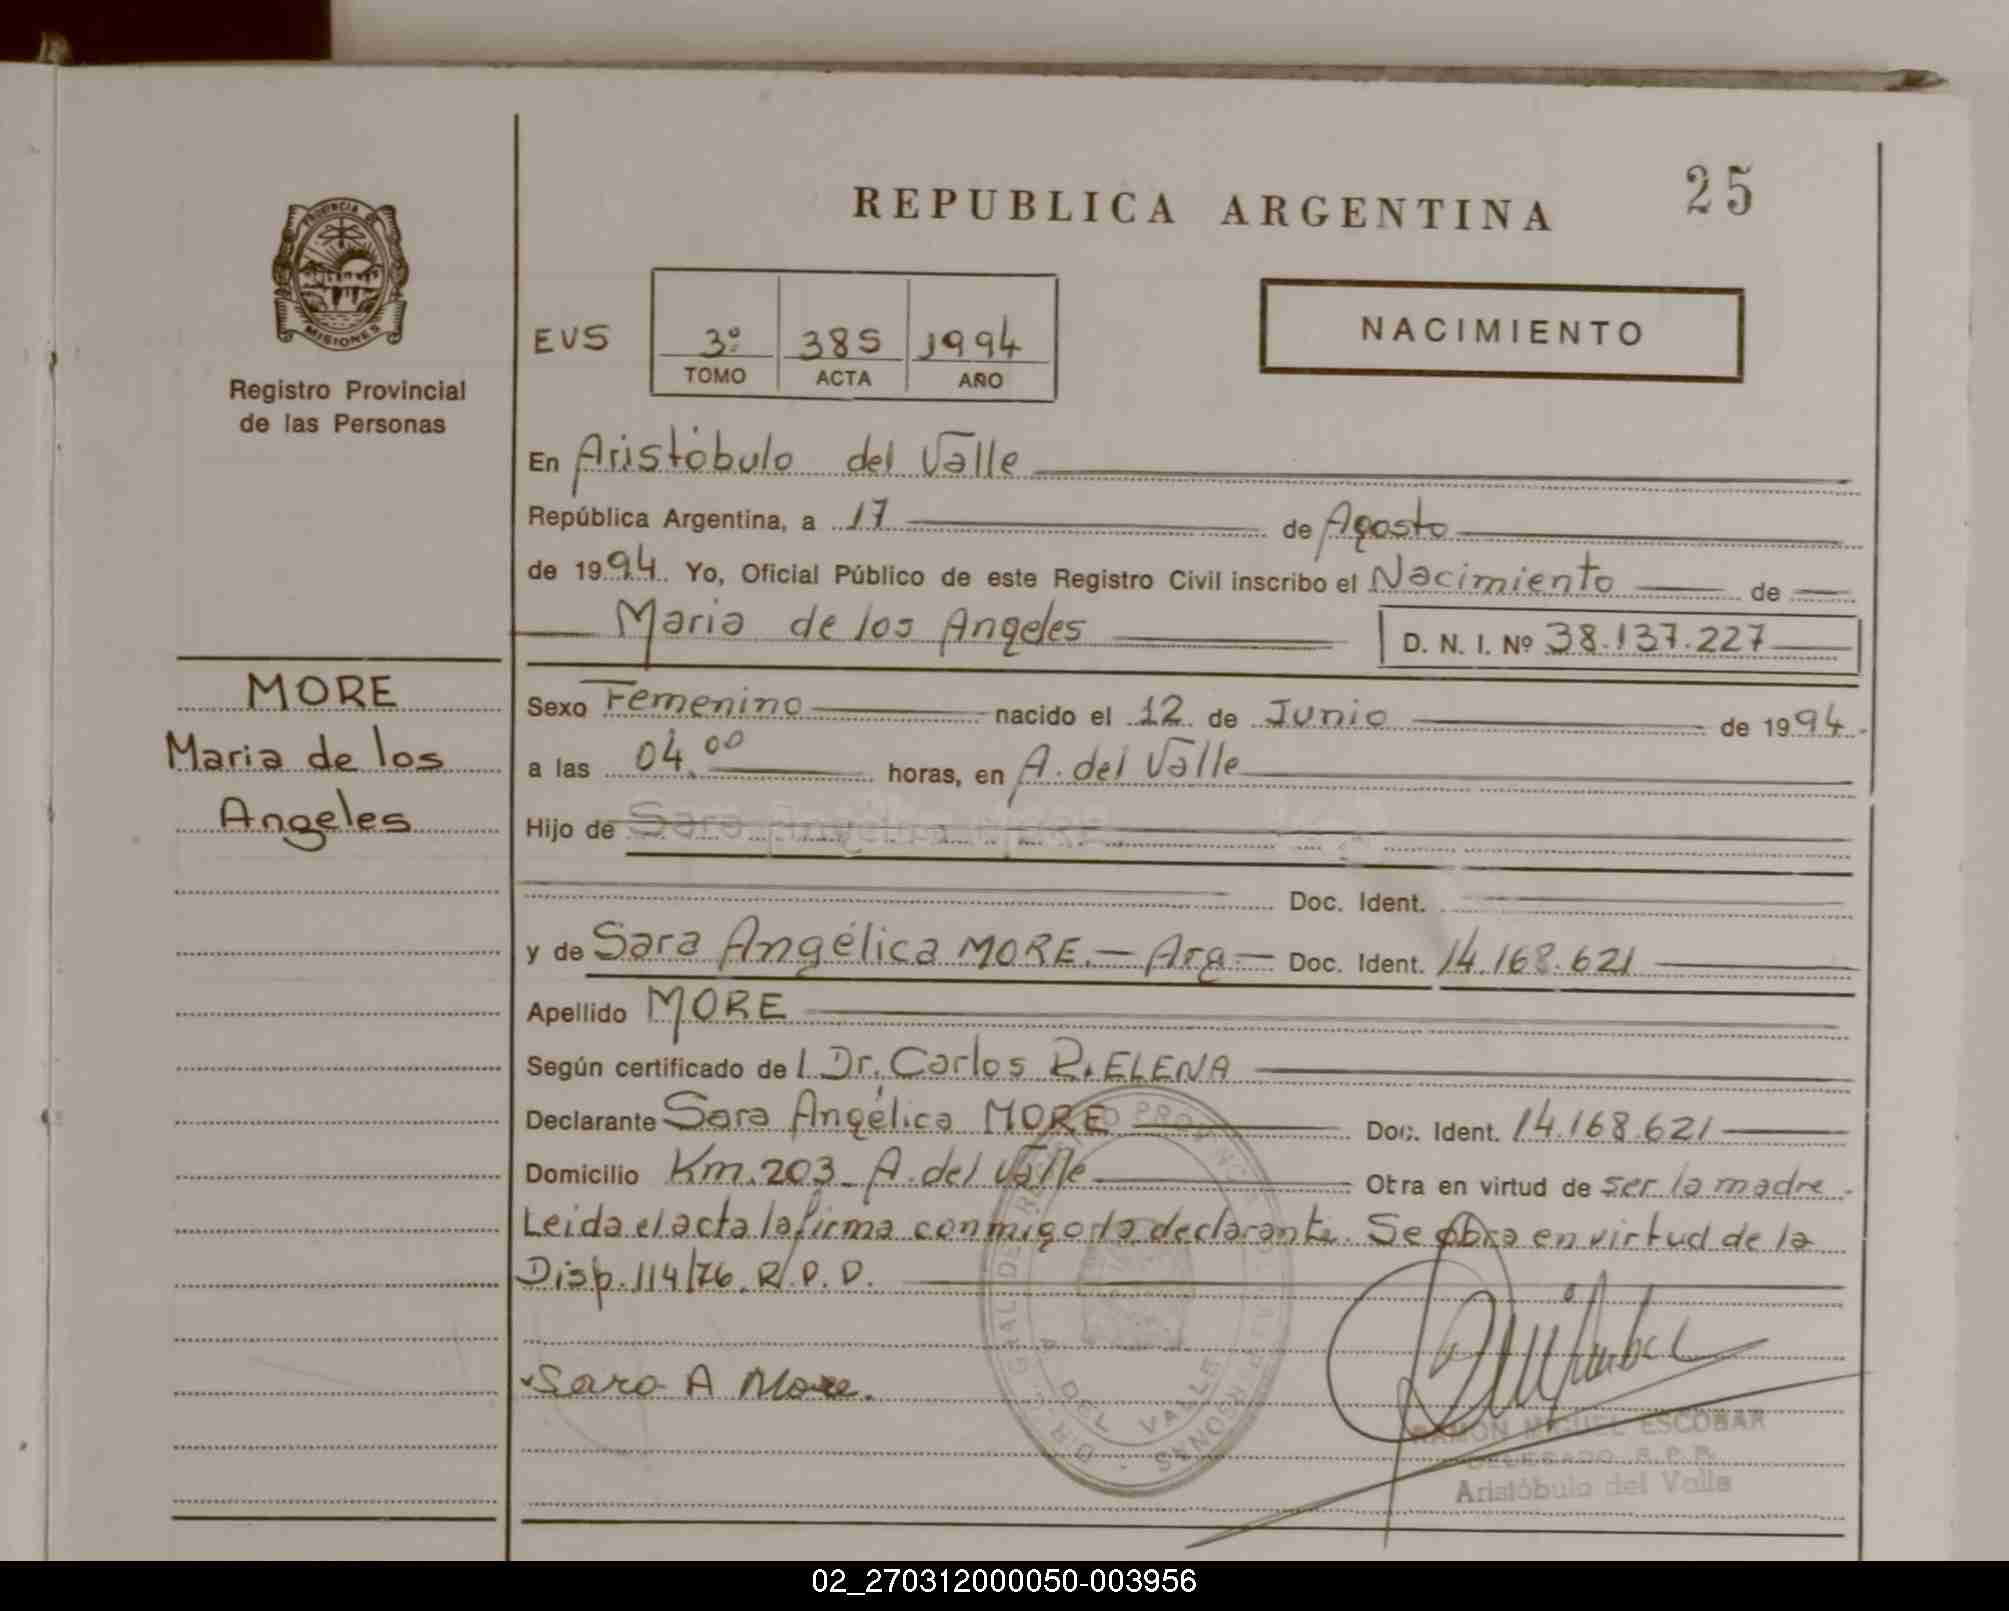 25
REPUBLICA ARGENTINA
PROVINCIA DE
MISIONES
Registro Provincial
de las Personas
NACIMIENTO
EVS 3º 385 1994
TOMO ACTA AÑO
En Aristóbulo del Valle
República Argentina, a 17 de Agosto
de 1994. Yo, Oficial Público de este Registro Civil inscribo el Nacimiento de
Maria de los Angeles D. N. I. Nº 38.137.227
MORE
Maria de los
Angeles
Sexo Femenino nacido el 12 de Junio de 1994
a las 04.00 horas, en A. del Valle
Hijo de Sara
Doc. Ident.
y de Sara Angélica MORE.- Arg- Doc. Ident. 14.168.621
Apellido MORE
Según certificado de l Dr. Carlos R. ELENA
Declarante Sara Angélica MORE Doc. Ident. 14.168.621
Domicilio Km. 203 A. del Valle Obra en virtud de ser la madre.
Leida el acta la firma conmigo la declarante. Se obra en virtud de la
Disp. 114/76. R.P.P.
Sara A More.
DEL VALLE
RAMON MIGUEL ESCOBAR
DELEGADO R.P.P.
Aristóbulo del Valle
02_270312000050-003956